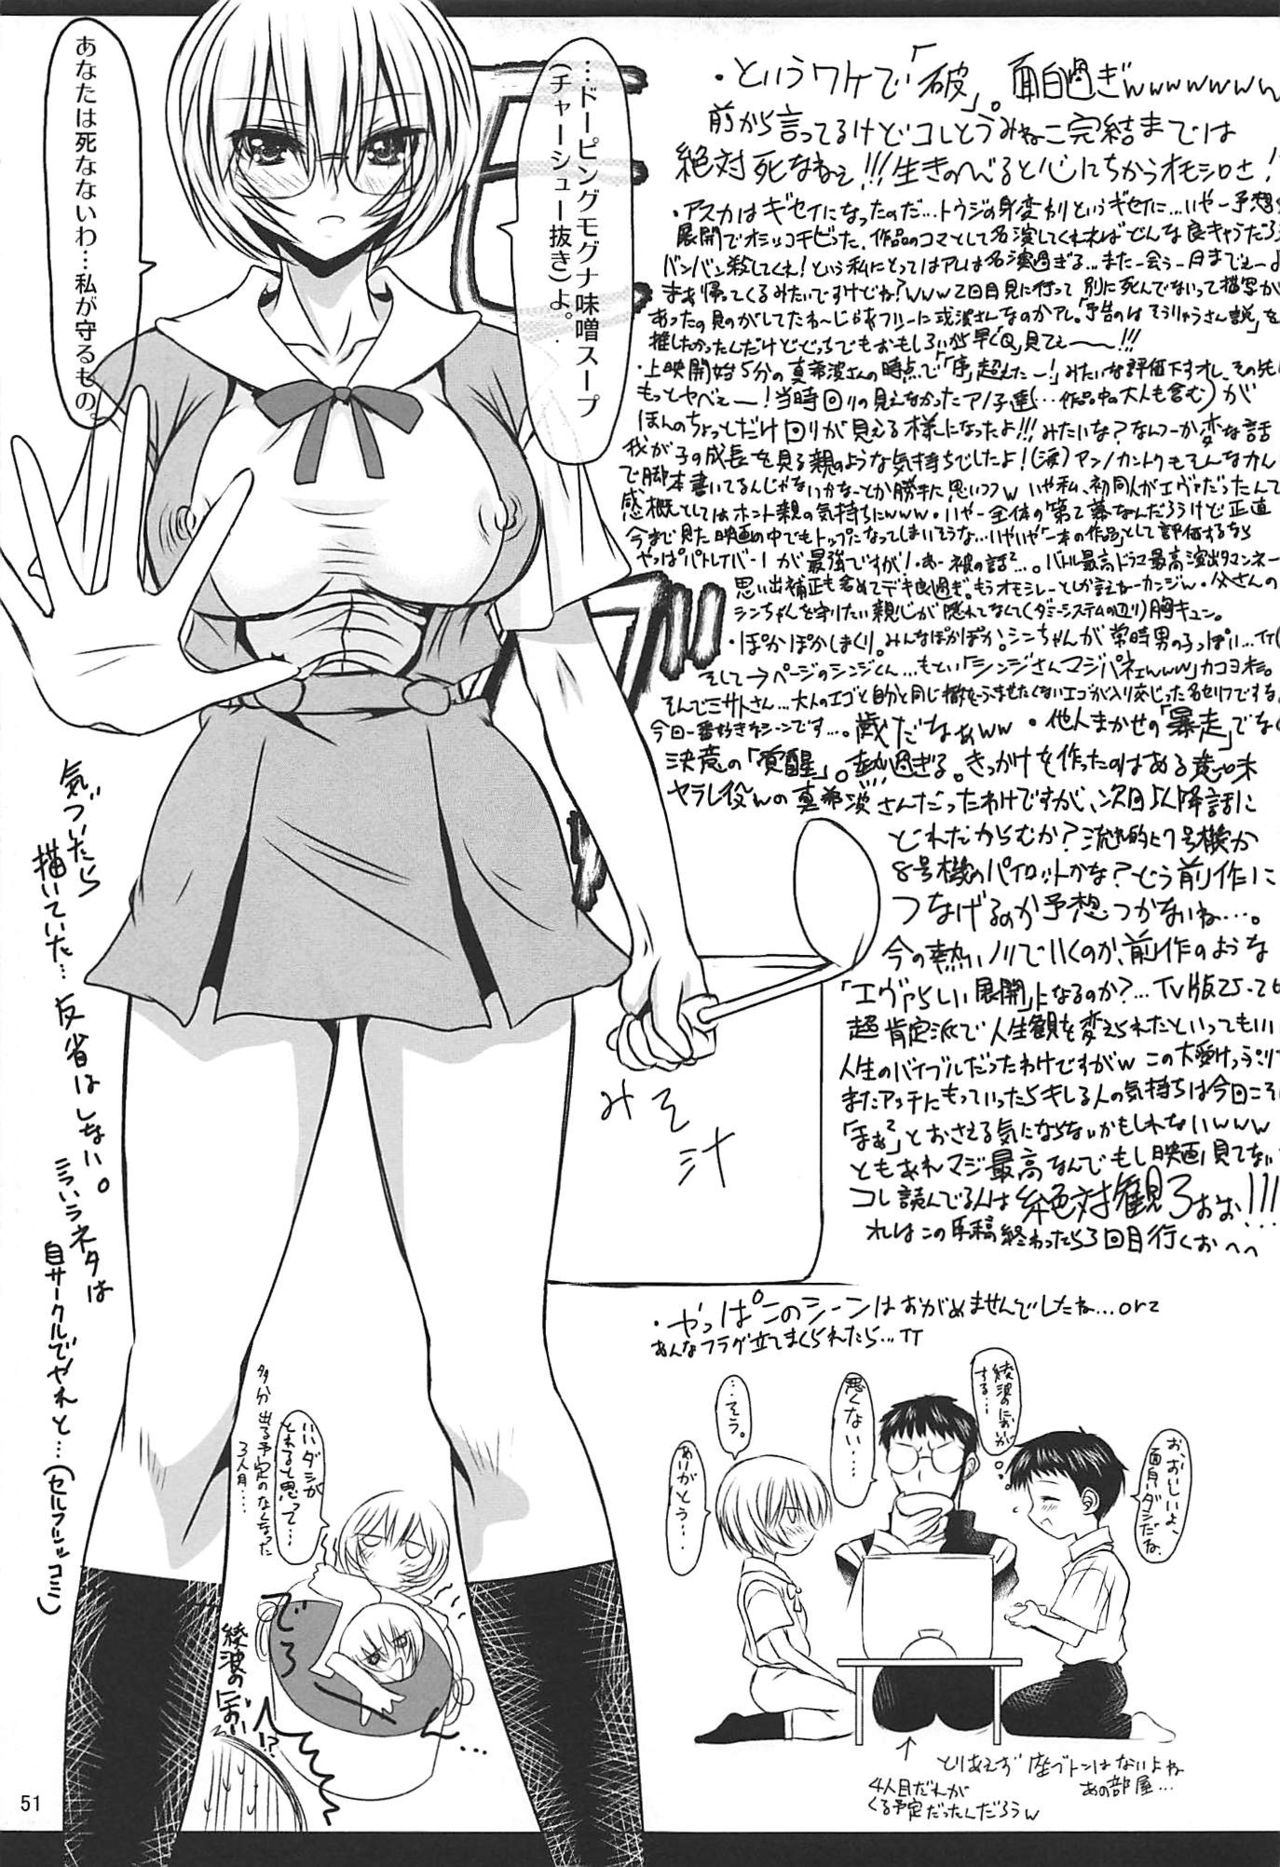 ・というワケで「破」。面白過ぎwwwwwww
前から言ってるけどコレとうみねこ完結までは
絶対死なねえ!!!生きのべると心にちかうオモシロさ!
・アスカはギセイになったのだ…トウジの身変りというギセイに…いやー予想
展開でオシッコチビった。作品のコマとして名演してくれればどんな良キャラだろう
バンバン殺してくれ!という私にとってはアレは名演過ぎる…また会う日までぇーよ
まあ帰ってくるみたいですけどね?www2回目見に行って別に死んでないって描写が
あったの見のがしてたわ〜じゃあフリーに式波さんなのかアレ。「予告のはそうりゅうさん説」を
推したかったんだけどどっちでもおもしろいが早く「Q」見てぇーーー!!!
・上映開始5分の真希波さんの時点で「「序」超えたー!」みたいな評価下すオレ、その先に
もっとヤベぇー!当時回りの見えなかったアノ子達(…作品中の大人も含む)が
ほんのちょっとだけ回りが見える様になったよ!!!みたいな?なんつーか変な話
我が子の成長を見る親のような気持ちでしたよ!(涙)アンノカントクもそんなかん
で脚本書いてるんじゃないかなーとか勝手に思いつつwいや私、初同人がエヴァだったんで
感概としてはホント親の気持ちにwww・いやー全体の「第2幕」なんだろうけど正直
今まで見た映画の中でもトップになってしまいそうな…いやいや「一本の作品」として評価するなら
やっぱパトレイバー1が最強ですが!・あー被の話²…。バトル最高ドラマ最高演出タマンネー
思い出補正も含めてデキ良過ぎ。もうオモシレーとしか言えねーカンジw・父さんの
シンちゃんを守りたい親心が隠れてなくて(ダミーシステムの辺り)胸キュン。
・ぽかぽかしまくり。みんなぽかぽか。シンちゃんが常時男の子っぽい…TT(
そして→ページのシンジくん…もとい「シンジさんマジパネェwww」カコヨオ。
そんでミサトさん…大人のエゴと自分と同じ轍をふませたくないエゴが入り交じった名セリフですな
今回一番好きなシーンです…。歳だなぁww・他人まかせの「暴走」でなく
決意の「覚醒」。熱過ぎる。きっかけを作ったのはある意味
ヤラレ役wの真希波さんだったわけですが、次回以降話に
どれだからむか?流れ的に7号機か
8号機のパイロットかな?どう前作に
つなげるのか予想つかないね…。
今の熱いノリでいくのか、前作のような
「エヴァらしい展開」になるのか?…TV版25-26
超肯定派で人生観を変えられたといってもいい
人生のバイブルだったわけですがwこの大受けっぷりで
またアッチにもっていったらキレる人の気持ちは今回こそ
「まぁ²」とおさえる気にならないかもしれないwww
ともあれマジ最高なんでもし映画見てない
コレ読んでる人は絶対観ろぉぉ!!!
れはこの原稿終わったら3回目行くおへへ
…ドーピングモグナ味噌スープ
(チャーシュー抜き)よ。
あなたは死なないわ…私が守るもの。
みそ
汁
気づいたら
描いていた…反省はしない。
こういうネタは
自サークルでやれと…(セルフツッコミ)
・やっぱこのシーンはおがめませんでしたね…orz
あんなフラグ立てまくられたら…TT
お、おいしいよ、
面白いダシだな、
綾波のにおいが
する…
悪くない…
…そう。
ありがとう…
いいダシが
とれると思って…
多分出る予定のなくなった
3人目…
でろ
で…
綾波の「におい」!?
↑
4人目だれが
くる予定だったんだろうw
とりあえず座ブトンはないよね
あの部屋…
51